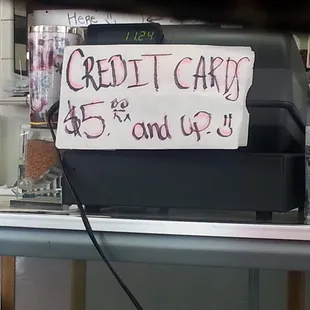 Here
11.24
CREDIT CARDS
$5.00 and UP.